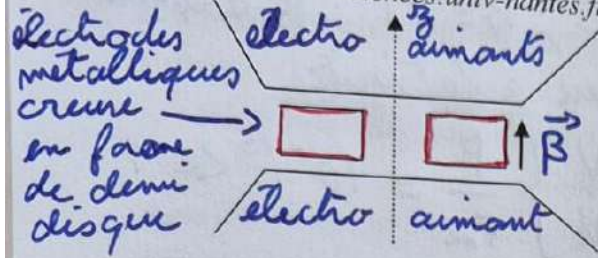 univ-nantes.f
électrodes
métalliques
creuse
en forme
de demi
disque
électro aimants
z
B
électro aimant